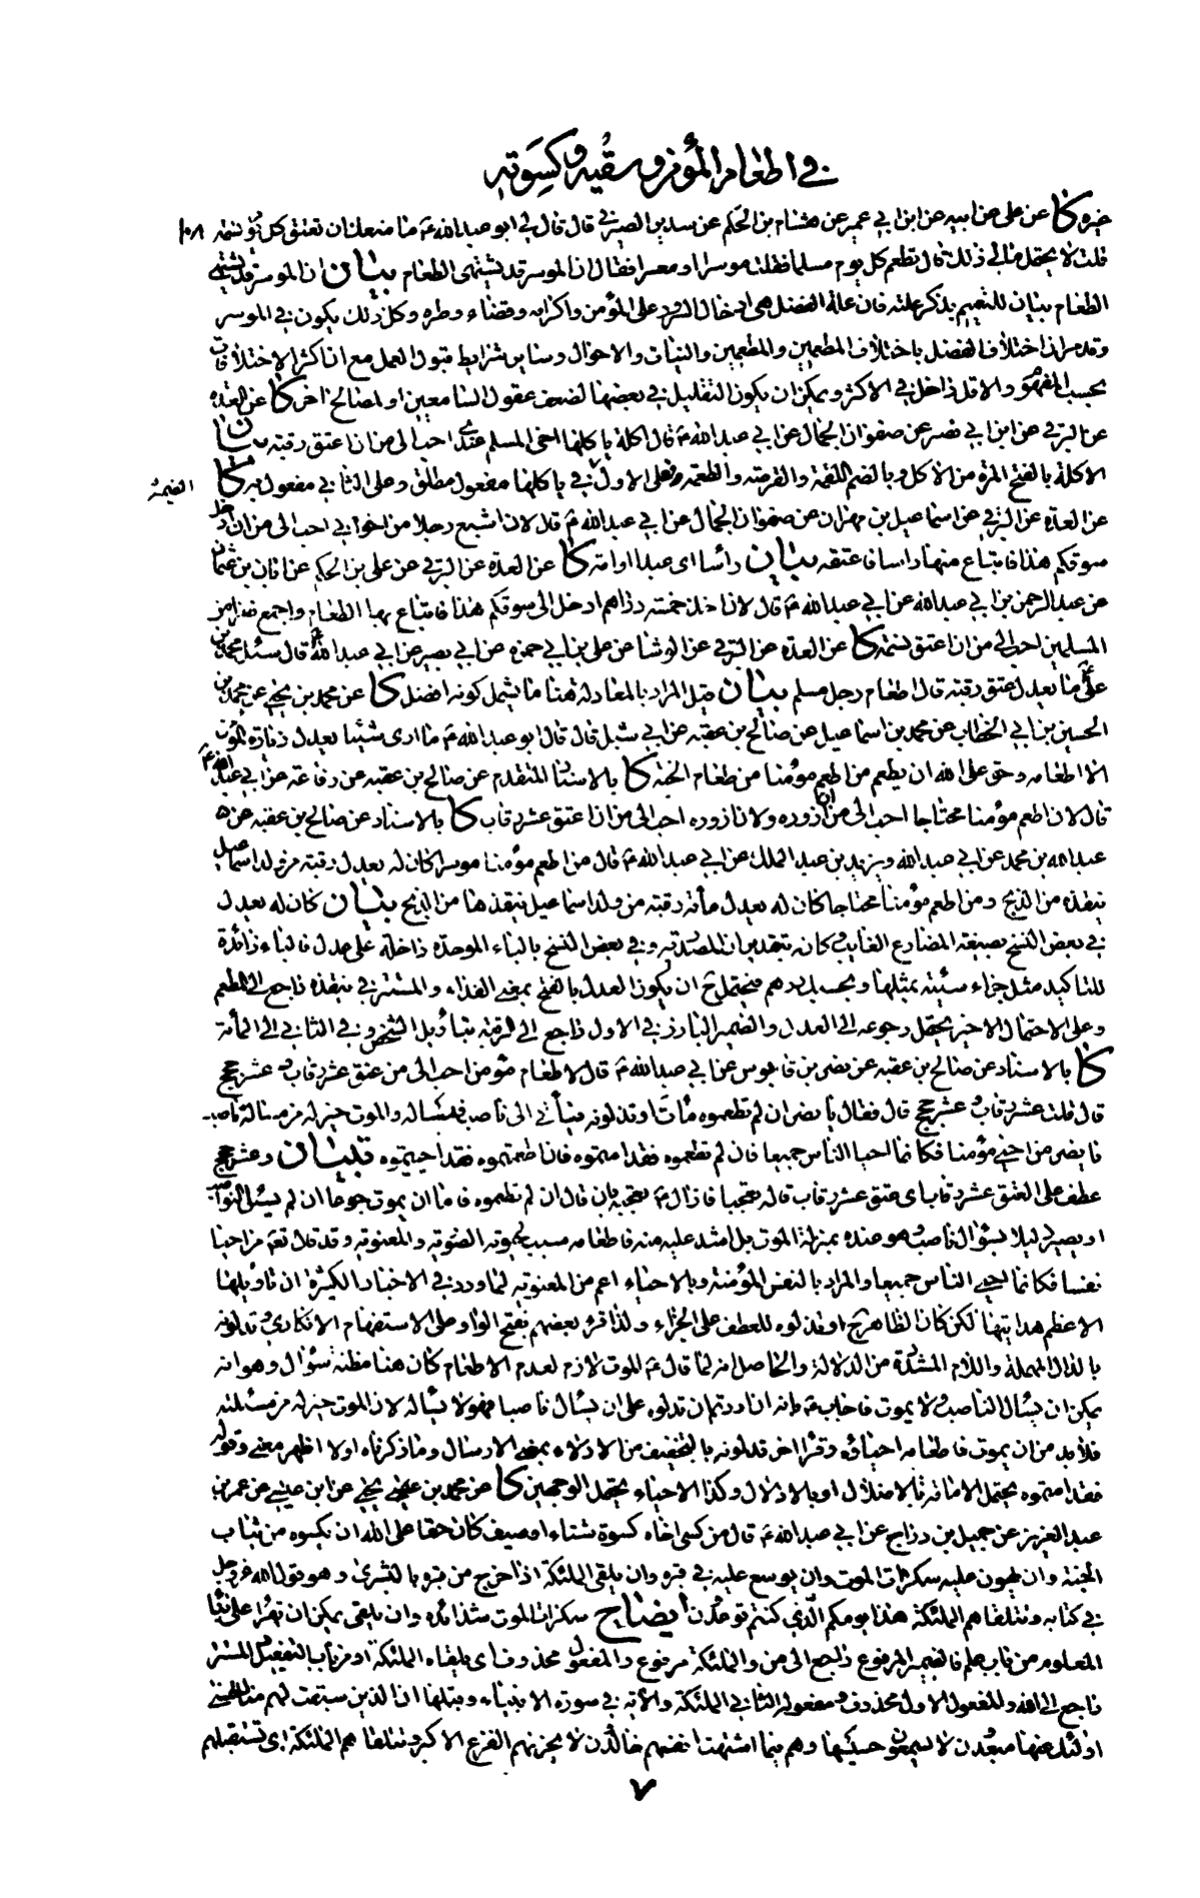 في اطعام المؤمن وسقيه وكسوته
خيره كا عن علي عن ابيه عن ابن ابي عمير عن هشام بن الحكم عن سدير الصيرفي قال قال لي ابو عبد الله ع ما منعك ان تعتق كل يوم نسمة ١٠٨
قلت لا يحتمل مالي ذلك قال تطعم كل يوم مسلما فقلت موسرا او معسرا فقال ان الموسر قد يشتهي الطعام بيان ان الموسر قد يشتهي
الطعام بيان للتعميم بذكر علته فان علة الفضل هي ادخال السرور على المؤمن واكرامه وقضاء وطره وكل ذلك يكون في الموسر
وقد مر ان اختلاف الفضل باختلاف المطعمين والمطعمين والنيات والاحوال وساير شرايط قبول العمل مع ان اكثر الاختلافات
بحسب المفهوم والاقل داخل في الاكثر ويمكن ان يكون التقليل في بعضها لضعف عقول السامعين او لمصالح اخر كا عن العدة
عن البرقي عن ابن ابي نصر عن صفوان الجمال عن ابي عبد الله ع قال اكلة ياكلها اخي المسلم عندي احب الى من ان اعتق رقبة بيان
الاكلة بالفتح المرة من الاكل وبالضم اللقمة والقرصة والطعمة وعلى الاول في ياكلها مفعول مطلق وعلى الثاني مفعول به كا
الضمير
عن العدة عن البرقي عن اسماعيل بن مهران عن صفوان الجمال عن ابي عبد الله ع قال لان اشبع رجلا من اخواني احب الى من ان ادخل
سوقكم هذا فابتاع منها راسا فاعتقه بيان راسا اى عبدا او امة كا عن العدة عن البرقي عن علي بن الحكم عن ابان بن عثمان
عن عبد الرحمن بن ابي عبد الله عن ابي عبد الله ع قال لان اخذ خمسة دراهم ادخل الى سوقكم هذا فابتاع بها الطعام واجمع نفرا من
المسلمين احب الى من ان اعتق نسمة كا عن العدة عن البرقي عن الوشا عن علي بن ابي حمزه عن ابي بصير عن ابي عبد الله ع قال سئل محمد بن
علي ع ما يعدل عتق رقبة قال اطعام رجل مسلم بيان قيل المراد بالمعادلة هنا ما يشمل كونه افضل كا عن محمد بن يحيى عن محمد بن
الحسين بن ابي الخطاب عن محمد بن اسماعيل عن صالح بن عقبه عن ابي شبل قال قال ابو عبد الله ع ما ارى شيئا يعدل زيارة المؤمن
الا اطعامه وحق على الله ان يطعم من اطعم مؤمنا من طعام الجنة كا بالاسناد المتقدم عن صالح بن عقبه عن رفاعة عن ابي عبد الله ع
قال لان اطعم مؤمنا محتاجا احب الى من ان ازوره ولان ازوره احب الى من ان اعتق عشر رقاب كا بالاسناد عن صالح بن عقبه عن
عبد الله بن محمد عن ابي عبد الله ويزيد بن عبد الملك عن ابي عبد الله ع قال من اطعم مؤمنا موسرا كان له يعدل رقبة من ولد اسماعيل
ينقذه من الذبح ومن اطعم مؤمنا محتاجا كان له يعدل مأة رقبة من ولد اسماعيل ينقذها من الذبح بيان كان له يعدل
في بعض النسخ بصيغة المضارع الغايب وكانه بتقدير ان المصدرية وفي بعض النسخ بالباء الموحدة داخلة على عدل فالباء زائدة
للتاكيد مثل جزاء سيئة بمثلها وبحسبك درهم فيحتمل ح ان يكون العدل بالفتح بمعنى الفداء والمستتر في ينقذه راجع الى المطعم
وعلى الاحتمال الاخير يحتمل رجوعه الى العدل والضمير البارز في الاول راجع الى الرقبة بتاويل الشخص وفي الثاني الى المأة
كا بالاسناد عن صالح بن عقبه عن نصر بن قابوس عن ابي عبد الله ع قال لاطعام مؤمن احب الى من عتق عشر رقاب و عشر حجج
قال قلت عشر رقاب و عشر حجج قال فقال يا نصر ان لم تطعموه مات او تدلونه فيأتي الى ناصب فيسأله والموت خير له من مسالة ناصب
يا نصر من احيى مؤمنا فكانما احيا الناس جميعا فان لم تطعموه فقد امتموه فان اطعمتموه فقد احييتموه تبيان وعشر حجج
عطف على العتق عشر رقاب اى عتق عشر رقاب قاله تعجبا فازال ع تعجبه بان قال ان لم تطعموه فاما ان يموت جوعا ان لم يسئل النواصب
او يصير ذليلا بسؤال ناصب وهو عنده بمنزلة الموت بل اشد عليه منه فاطعامه سبب لحيوته الصورية والمعنوية وقد قال تعالى من احيا
نفسا فكانما احيى الناس جميعا والمراد بالنفس المؤمنة وبالاحياء اعم من المعنوية لما ورد في الاخبار الكثيرة ان تاويلها
الاعظم هدايتها لكن كان الظاهر ح او تدلوه للعطف على الجزاء ولذا قرء بعضهم بفتح الواو على الاستفهام الانكاري وتدلونه
بالدال المهملة واللام المشددة من الدلالة والحاصل انه لما قال ع الموت لازم لعدم الاطعام كان هنا مظنة سؤال وهو انه
يمكن ان يسأل الناصب ولا يموت فاجاب ع بانه ان اردتم ان تدلوه على ان يسال ناصبا فهو لا يسأله لان الموت خير له من مسئلته
فلا بد من ان يموت فاطعامه احياؤه وقرأ اخر تدلونه بالتخفيف من الادلاء بمعنى الارسال وما ذكرناه اولا اظهر معنى وقوله
فقد امتموه يحتمل الاماتة بالاضلال او بالاذلال وكذا الاحياء يحتمل الوجهين كا عن محمد بن يحيى عن ابن عيسى عن عمر بن
عبد العزيز عن جميل بن دراج عن ابي عبد الله ع قال من كسى اخاه كسوة شتاء او صيف كان حقا على الله ان يكسوه من ثياب
الجنة وان يهون عليه سكرات الموت وان يوسع عليه في قبره وان يلقى الملئكة اذا خرج من قبره بالبشرى وهو قول الله عز وجل
في كتابه وتتلقاهم الملئكة هذا يومكم الذي كنتم توعدون ايضاح سكرات الموت شدائده وان يلقى يمكن ان يقرأ على بناء
المعلوم من باب علم فالضمير المرفوع راجع الى من والملئكة مرفوع والمفعول محذوف اى يلقاه الملئكة او من باب التفعيل والمستتر
راجع الى الله والمفعول الاول محذوف ومفعوله الثاني الملئكة والآية في سورة الانبياء وقبلها ان الذين سبقت لهم منا الحسنى
اولئك عنها مبعدون لا يسمعون حسيسها وهم فيما اشتهت انفسهم خالدون لا يحزنهم الفزع الاكبر وتتلقاهم الملئكة اى تستقبلهم
٧